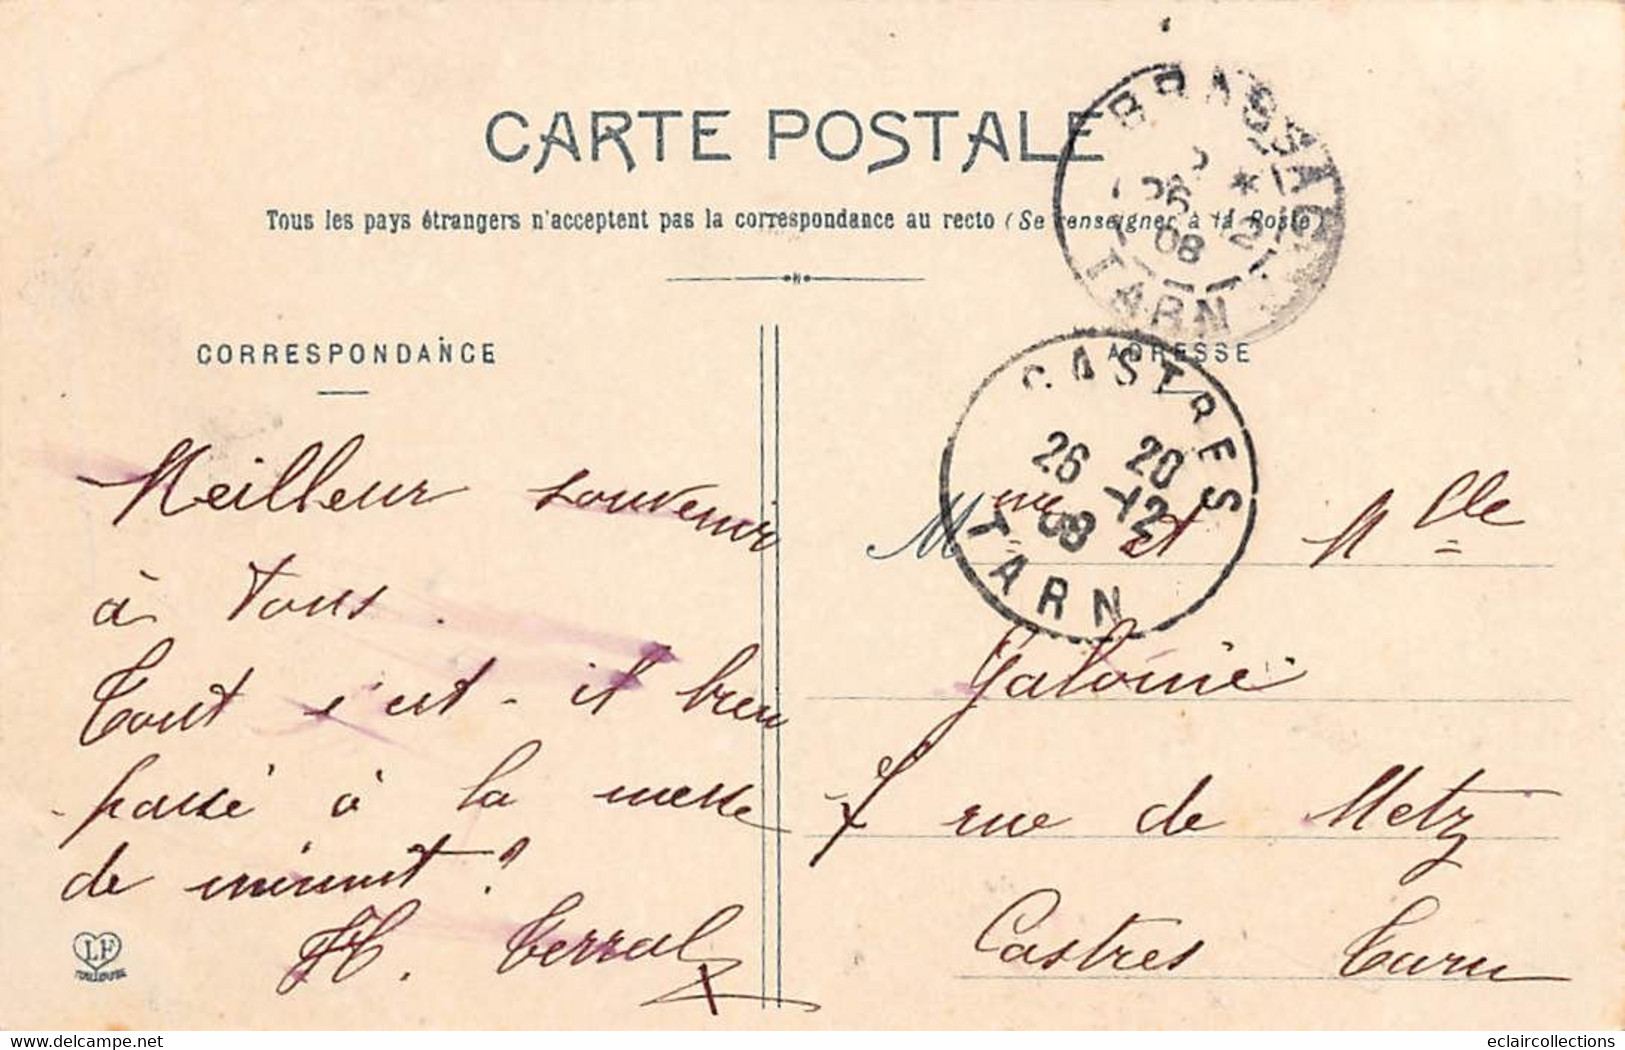 CARTE POSTALE
Tous les pays étrangers n'acceptent pas la correspondance au recto (Se renseigner à la Poste)
BRASSAC
26 * 12
08
TARN
CORRESPONDANCE
ADRESSE
CASTRES
20
26 -12
08
TARN
Meilleur souvenir
à tous.
Tout s'est-il bien
passé à la messe
de minuit ?
H. Terral
Mme et Mlle
rue de Metz
Castres Tarn
LF
TOULOUSE
delcampe.net
eclaircollections